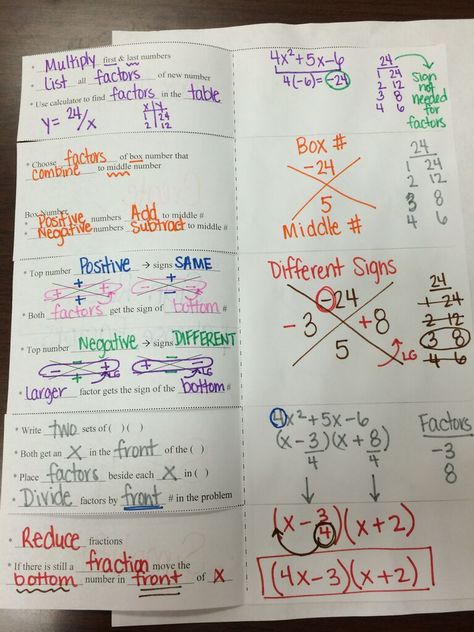 • Multiply first & last numbers
• List all factors of new number
• Use calculator to find factors in the table
y = 24/x
x | y
1 | 24
2 | 12
4x² + 5x - 6
4(-6) = -24
24
1 24
2 12
3 8
4 6
Sign not needed for factors
• Choose factors of box number that
combine to middle number
Box Number
• Positive numbers Add to middle #
• Negative numbers Subtract to middle #
Box #
-24
5
Middle #
24
1 24
2 12
3 8
4 6
• Top number Positive → signs SAME
+ +
+ + - -
+ -
• Both factors get the sign of bottom #
• Top number Negative → signs DIFFERENT
- -
LG LG
Larger factor gets the sign of the bottom #
Different Signs
-24
-3 +8
5
LG
24
1 24
2 12
3 8
4 6
• Write two sets of ( ) ( )
• Both get an X in the front of the ( )
• Place factors beside each X in ( )
• Divide factors by front # in the problem
4x² + 5x - 6
(x - 3/4)(x + 8/4)
Factors
-3
8
• Reduce fractions
• If there is still a fraction move the
bottom number in front of X
(x - 3/4)(x + 2)
(4x - 3)(x + 2)